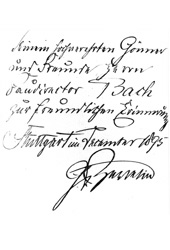 Meinem hochverehrten Gönner
und Freunde Herrn
Baudirector Bach
zur freundlichen Erinnerung
Stuttgart im December 1895